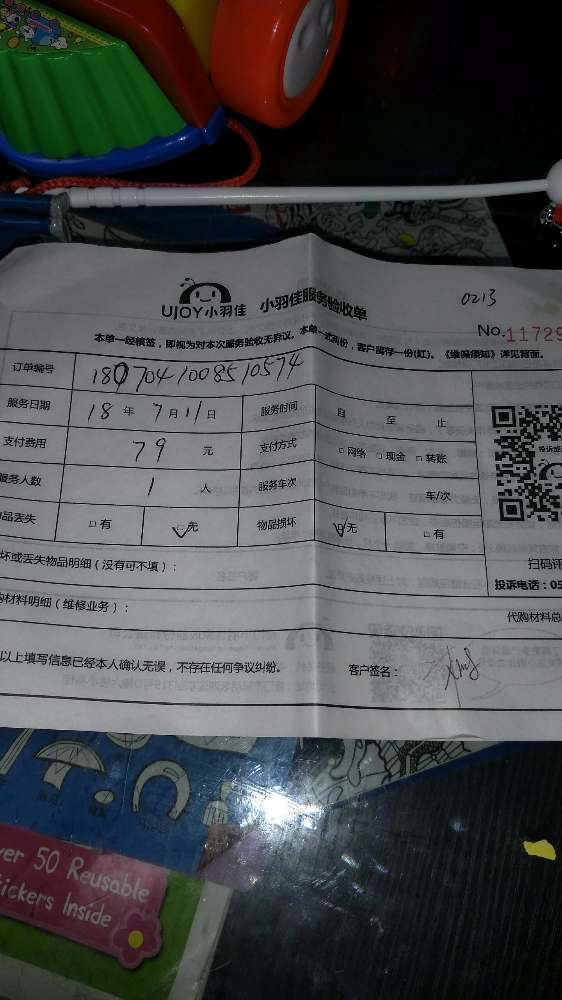 UJOY小羽佳 小羽佳服务验收单
0213
No.11729
本单一经核签，即视为对本次服务验收无异议。本单一式两份，客户留存一份(红)。《维保须知》详见背面。
订单编号 1807041008510574
服务日期 18 年 7 月 11 日 服务时间 自 至 止
支付费用 79 元 支付方式 □网络 □现金 □转账
服务人数 1 人 服务车次 车/次
品丢失 □有 □无 物品损坏 □无 □有
坏或丢失物品明细（没有可不填）：
扫码评
投诉电话：05
购材料明细（维修业务）：
代购材料总
以上填写信息已经本人确认无误，不存在任何争议纠纷。 客户签名：
ver 50 Reusable
tickers Inside